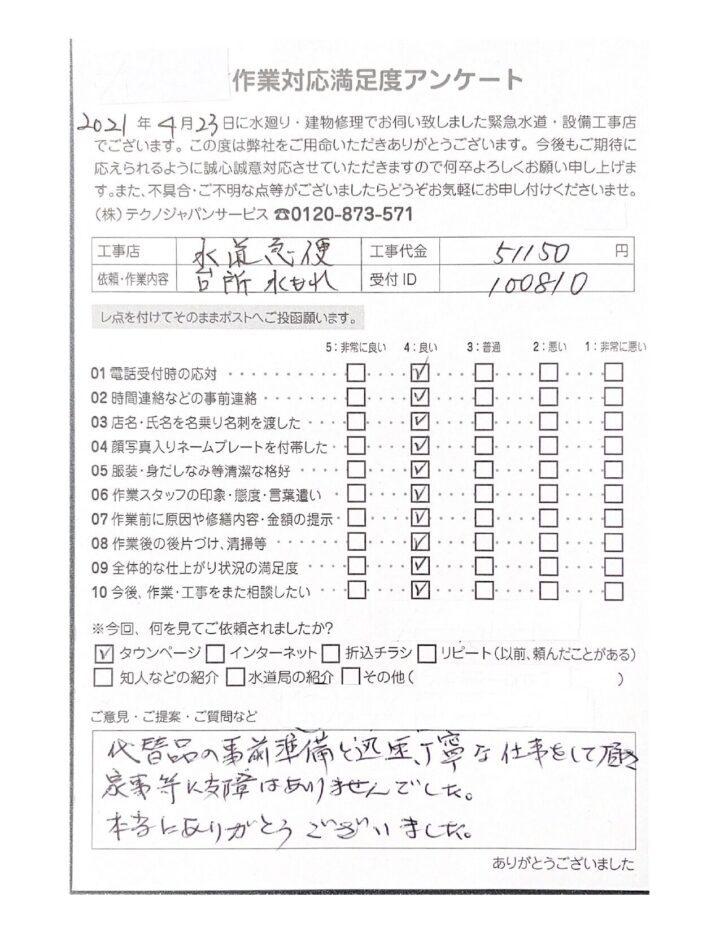 作業対応満足度アンケート
2021年4月23日に水廻り・建物修理でお伺い致しました緊急水道・設備工事店
でございます。この度は弊社をご用命いただきありがとうございます。今後もご期待に
応えられるように誠心誠意対応させていただきますので何卒よろしくお願い申し上げま
す。また、不具合・ご不明な点等がございましたらどうぞお気軽にお申し付けくださいませ。
(株)テクノジャパンサービス ☎0120-873-571
工事店 水道急便 工事代金 51150 円
依頼・作業内容 台所 水もれ 受付ID 100810
レ点を付けてそのままポストへご投函願います。
5：非常に良い 4：良い 3：普通 2：悪い 1：非常に悪い
01 電話受付時の応対
02 時間連絡などの事前連絡
03 店名・氏名を名乗り名刺を渡した
04 顔写真入りネームプレートを付帯した
05 服装・身だしなみ等清潔な格好
06 作業スタッフの印象・態度・言葉遣い
07 作業前に原因や修繕内容・金額の提示
08 作業後の後片づけ、清掃等
09 全体的な仕上がり状況の満足度
10 今後、作業・工事をまた相談したい
※今回、何を見てご依頼されましたか?
タウンページ インターネット 折込チラシ リピート(以前、頼んだことがある)
知人などの紹介 水道局の紹介 その他( )
ご意見・ご提案・ご質問など
代替品の事前準備と迅速、丁寧な仕事をして頂き
家事等に支障はありませんでした。
本当にありがとうございました。
ありがとうございました